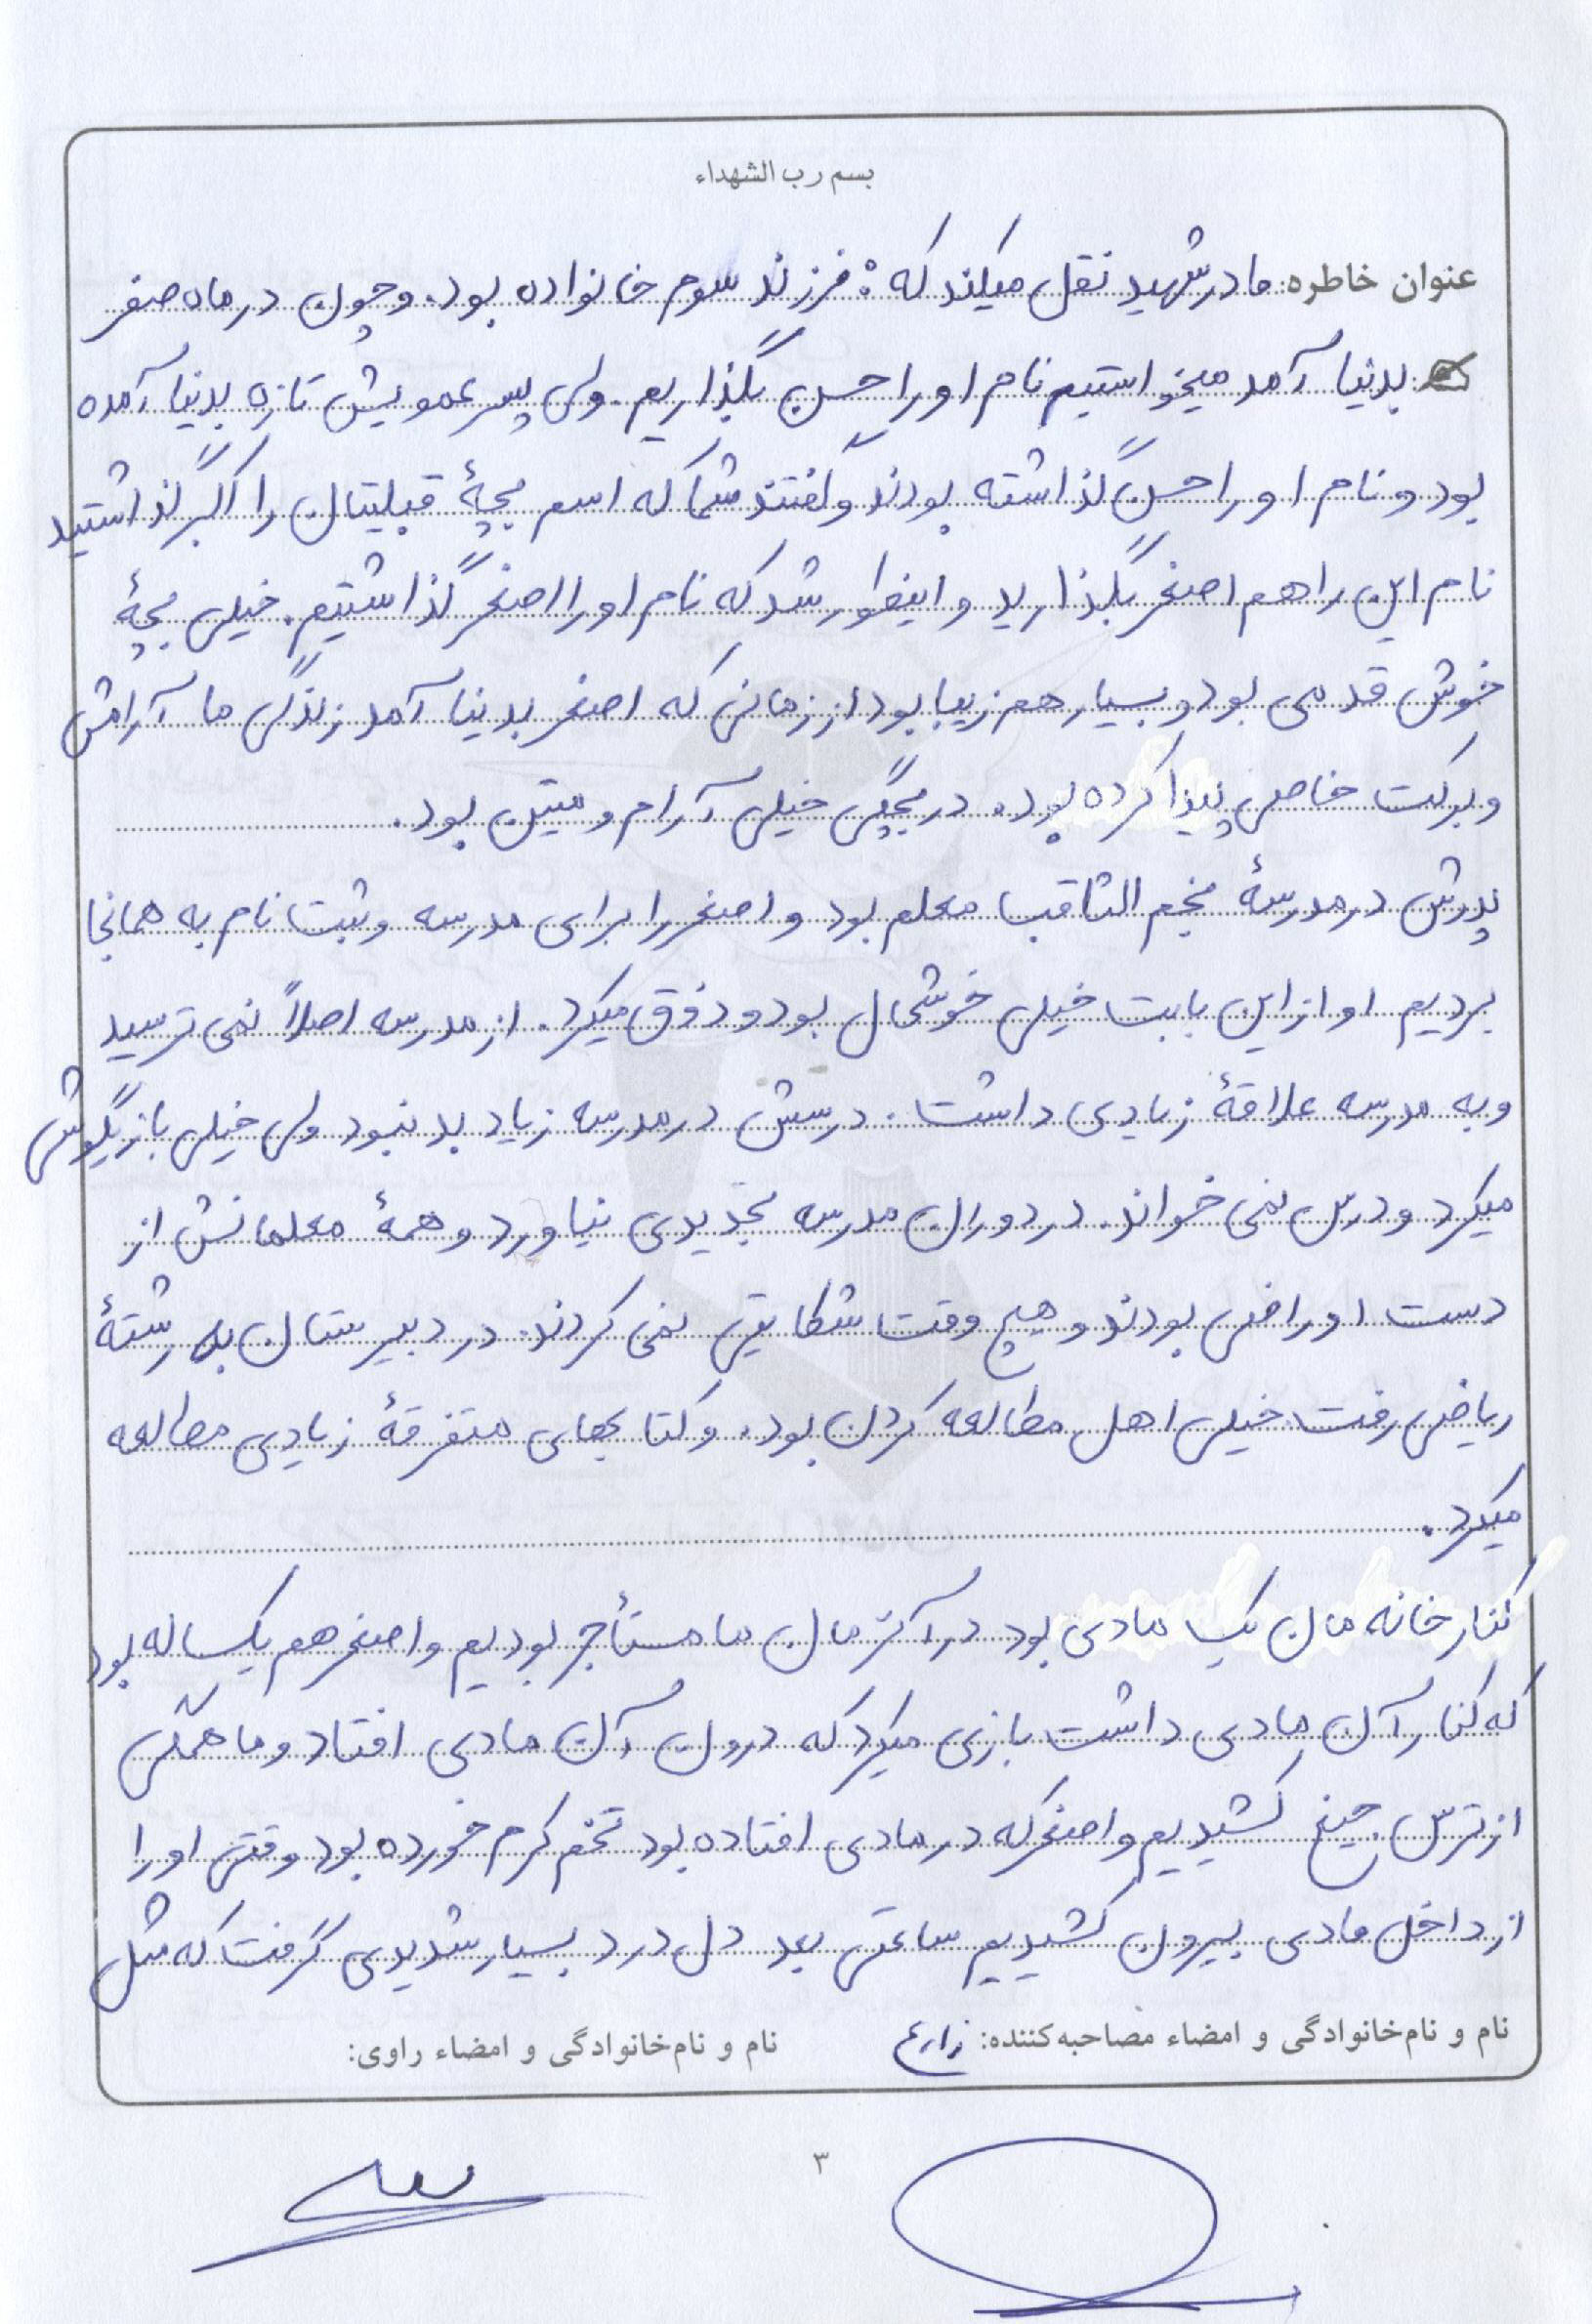 بسم رب الشهداء
عنوان خاطره: مادر شهید نقل میکند که : فرزند سوم خانواده بود. و چون در ماه صفر
بدنیا آمد میخواستیم نام او را حسن بگذاریم. ولی پسر عمویش تازه بدنیا آمده
بود و نام او را حسن گذاشته بودند و گفتند شما که اسم بچهٔ قبلیتان را اکبر گذاشتید
نام این را هم اصغر بگذارید و اینطور شد که نام او را اصغر گذاشتیم. خیلی بچهٔ
خوش قدمی بود و بسیار هم زیبا بود از زمانی که اصغر بدنیا آمد زندگی ما آرامش
و برکت خاصی پیدا کرده بود. در بچگی خیلی آرام و متین بود.
پدرش در مدرسهٔ نجم الثاقب معلم بود و اصغر را برای مدرسه و ثبت نام به همانجا
بردیم او از این بابت خیلی خوشحال بود و ذوق میکرد. از مدرسه اصلاً نمی ترسید
و به مدرسه علاقهٔ زیادی داشت. درسش در مدرسه زیاد بد نبود ولی خیلی بازیگوشی
میکرد و درس نمی خواند. در دوران مدرسه تجدیدی نیاورد و همهٔ معلمانش از
دست او راضی بودند و هیچ وقت شکایتی نمی کردند. در دبیرستان به رشتهٔ
ریاضی رفت. خیلی اهل مطالعه کردن بود. و کتابهای متفرقهٔ زیادی مطالعه
میکرد.
کنار خانه مان یک مادی بود در آن زمان ما مستأجر بودیم و اصغر هم یکساله بود
که کنار آن مادی داشت بازی میکرد که درون آن مادی افتاد و ما همگی
از ترس جیغ کشیدیم و اصغر که در مادی افتاده بود تخم کرم خورده بود وقتی او را
از داخل مادی بیرون کشیدیم ساعتی بعد دل درد بسیار شدیدی گرفت که مثل
نام و نام‌خانوادگی و امضاء مصاحبه‌کننده: زارع نام و نام‌خانوادگی و امضاء راوی:
۳